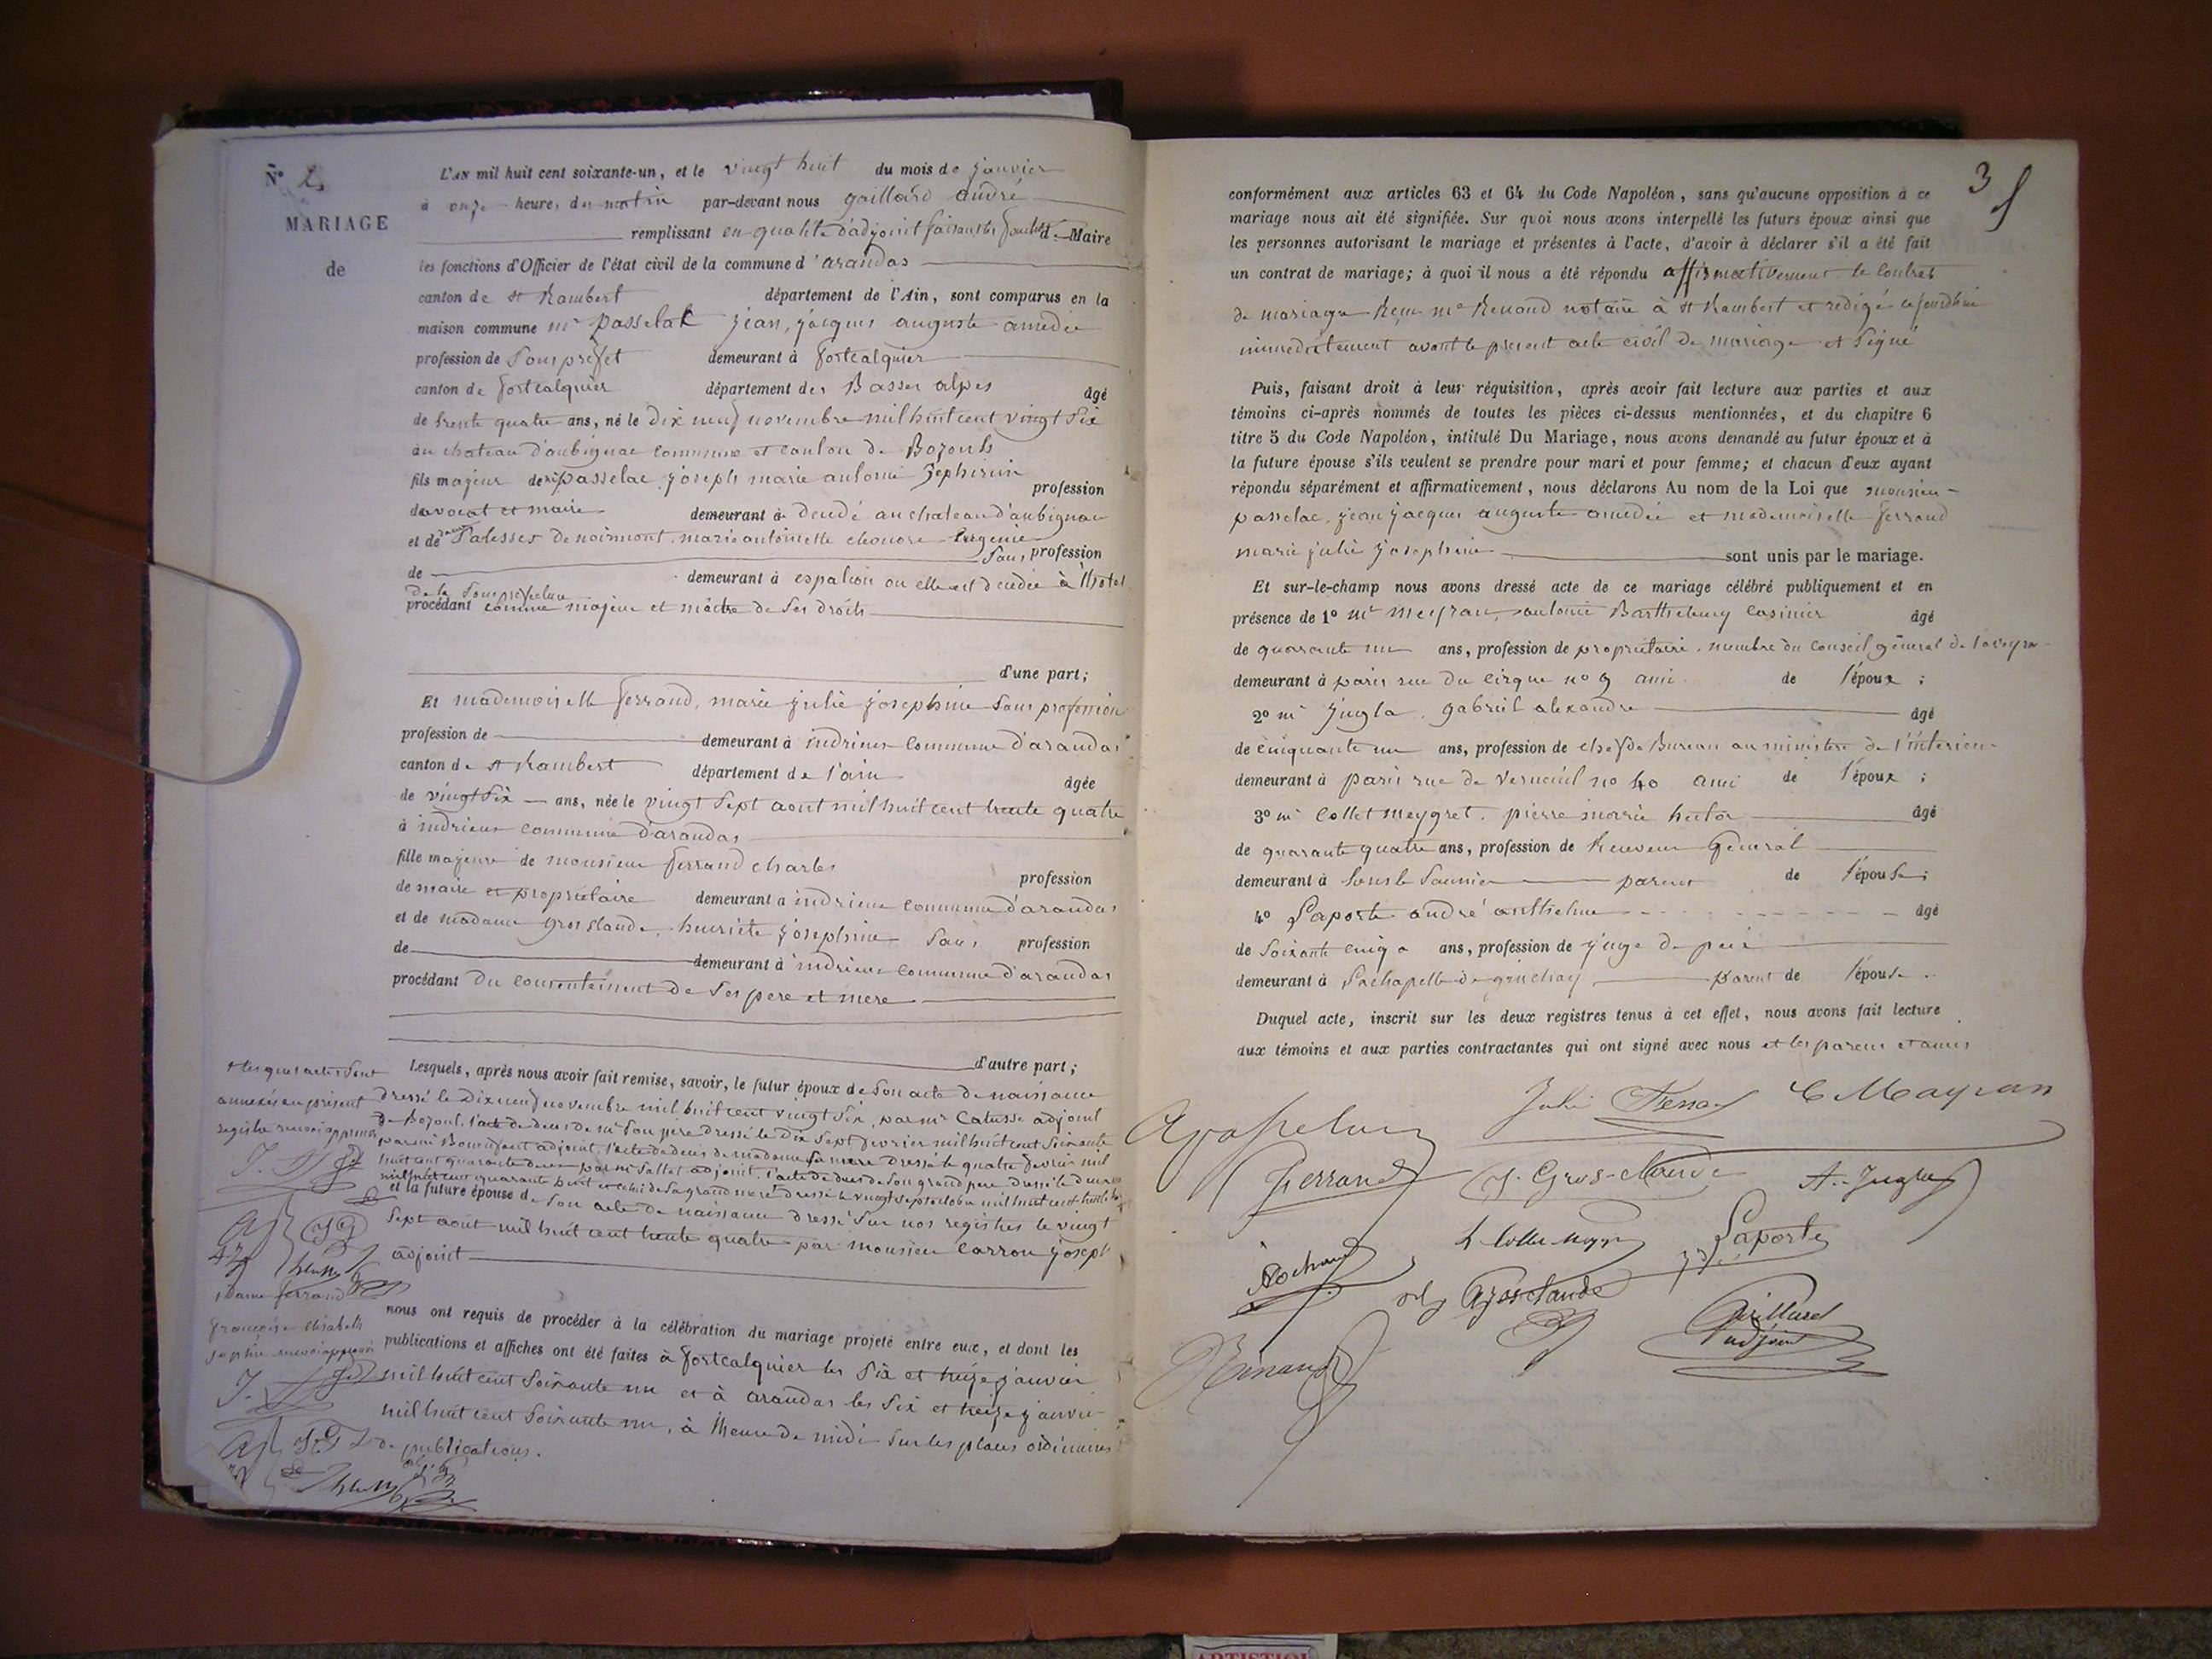 N° 2
MARIAGE
de
L'AN mil huit cent soixante-un, et le vingt huit du mois de janvier
à onze heures du matin par-devant nous gaillard andré
remplissant en qualité d'adjoint faisant les fonctions de Maire
les fonctions d'Officier de l'état civil de la commune d'arandas
canton de st Rambert département de l'Ain, sont comparus en la
maison commune mr passelac jean, jacques auguste amédée
profession de Sous préfet demeurant à forcalquier
canton de forcalquier département des Basses alpes âgé
de trente quatre ans, né le dix neuf novembre mil huit cent vingt Six
au chateau d'aubignac commune et canton de Bozouls
fils majeur de mr passelac joseph marie antoine Zephirin profession
d'avocat et maire demeurant à décédé au chateau d'aubignac
et de Palesses de noirmont, marie antoinette eleonore Eugenie
de Sans profession
demeurant à espalion ou elle est décédée à l'hotel
de la Sous préfecture
procédant comme majeur et maître de Ses droits
d'une part;
Et mademoiselle ferrand, marie julie josephine Sans profession
profession de demeurant à indrieux commune d'arandas
canton de st Rambert département de l'ain âgée
de vingt Six ans, née le vingt Sept aout mil huit cent trente quatre
à indrieux commune d'arandas
fille majeure de monsieur ferrand charles profession
de maire et propriétaire demeurant à indrieux commune d'arandas
et de madame grosclaude, henriete josephine Sans profession
de demeurant à indrieux commune d'arandas
procédant du consentement de Ses pere et mere
d'autre part;
Lesquels, après nous avoir fait remise, savoir, le futur époux de Son acte de naissance
dressé le dix neuf novembre mil huit cent vingt Six, par mr Catusse adjoint
de Bozouls, l'acte de deces de mr Son pere dressé le dix Sept fevrier mil huit cent Soixante
par mr adjoint, l'acte de deces de madame Sa mere dressé le quatre fevrier mil
huit cent quarante deux par mr Sallet adjoint, l'acte de deces de Son grand pere dressé le
mil huit cent quarante huit et celui de Sa grand mere dressé le vingt Sept octobre mil huit cent
et la future épouse de Son acte de naissance dressé Sur nos registres le vingt
Sept aout mil huit cent trente quatre par monsieur Carron joseph
adjoint
+ lesquels actes sont
annexés au présent
registre renvoi approuvé
Dame ferrand
françoise elisabeth
Sophie renvoi approuvé
nous ont requis de procéder à la célébration du mariage projeté entre eux, et dont les
publications et affiches ont été faites à forcalquier les Six et treize janvier
mil huit cent Soixante un et à arandas les Six et treize janvier
mil huit cent Soixante un, à l'heure de midi Sur les places ordinaires
de publications.
3
conformément aux articles 63 et 64 du Code Napoléon, sans qu'aucune opposition à ce
mariage nous ait été signifiée. Sur quoi nous avons interpellé les futurs époux ainsi que
les personnes autorisant le mariage et présentes à l'acte, d'avoir à déclarer s'il a été fait
un contrat de mariage; à quoi il nous a été répondu affirmativement le Contrat
de mariage Reçu me Renaud notaire à st Rambert et rédigé cejourdhui
immediatement avant le present acte civil de mariage et Signé
Puis, faisant droit à leur réquisition, après avoir fait lecture aux parties et aux
témoins ci-après nommés de toutes les pièces ci-dessus mentionnées, et du chapitre 6
titre 5 du Code Napoléon, intitulé Du Mariage, nous avons demandé au futur époux et à
la future épouse s'ils veulent se prendre pour mari et pour femme; et chacun d'eux ayant
répondu séparément et affirmativement, nous déclarons Au nom de la Loi que monsieur
passelac, jean jacques auguste amédée et mademoiselle ferrand
marie julie josephine sont unis par le mariage.
Et sur-le-champ nous avons dressé acte de ce mariage célébré publiquement et en
présence de 1° mr Meyran, antoine Barthelemy Casimir âgé
de quarante un ans, profession de propriétaire, membre du Conseil général de l'aveyron
demeurant à paris rue du cirque no 9 ami de l'époux;
2° mr jugla, gabriel alexandre âgé
de cinquante un ans, profession de chef de Bureau au ministère de l'interieur
demeurant à paris rue de Verneuil no 40 ami de l'époux;
3° mr Collet meygret, pierre marie hector âgé
de quarante quatre ans, profession de Receveur Général
demeurant à Lons le Saunier parent de l'épouse;
4° Laporte andré anthelme âgé
de Soixante cinq ans, profession de juge de paix
demeurant à Lachapelle de guinchay parent de l'épouse
Duquel acte, inscrit sur les deux registres tenus à cet effet, nous avons fait lecture
aux témoins et aux parties contractantes qui ont signé avec nous et les parens et amis
Julie Ferrand C Mayran
Ferrand J. Gros-claude A. Jugla
Rochand Laporte
Grosclaude
Gaillard
adjoint
Renaud